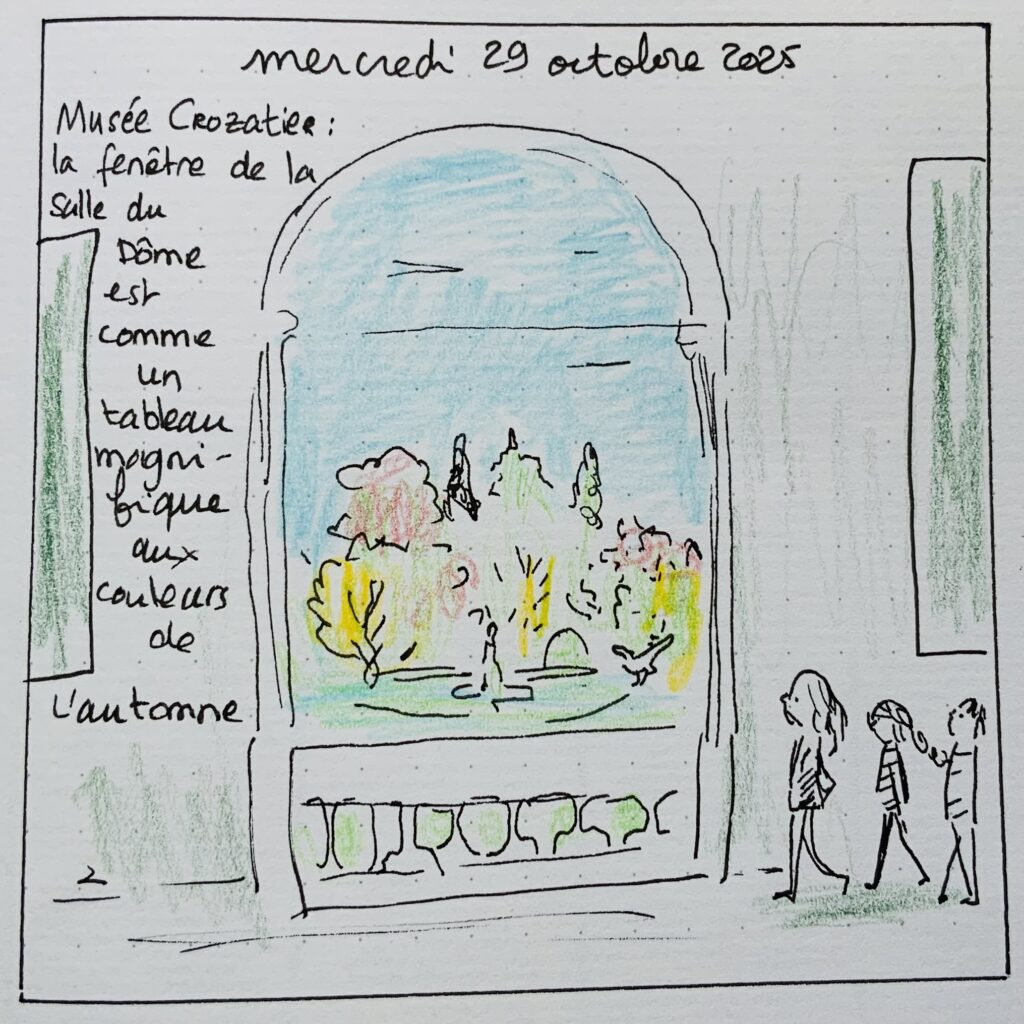 mercredi 29 octobre 2025
Musée Crozatier :
la fenêtre de la
salle du
Dôme
est
comme
un
tableau
magni-
fique
aux
couleurs
de
L'automne